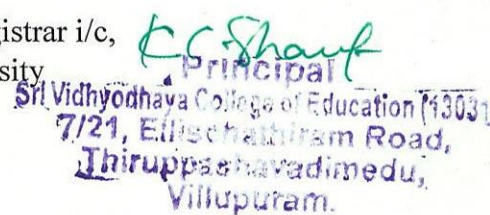 gistrar i/c,
sity
Principal
Sri Vidhyodhaya College of Education (13031
7/21, Ellischathiram Road,
Thiruppachavadimedu,
Villupuram.